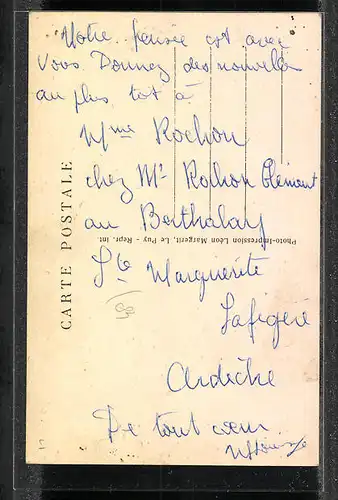 Notre pensée est avec
Vous Donnez des nouvelles
au plus tot à
Mme Rochon
chez Mr Rochon Clément
au Berthalay
Ste Marguerite
Lafigère
Ardèche
De tout cœur
CARTE POSTALE
Photo-Impression Léon Margerit, Le Puy - Repr. int.